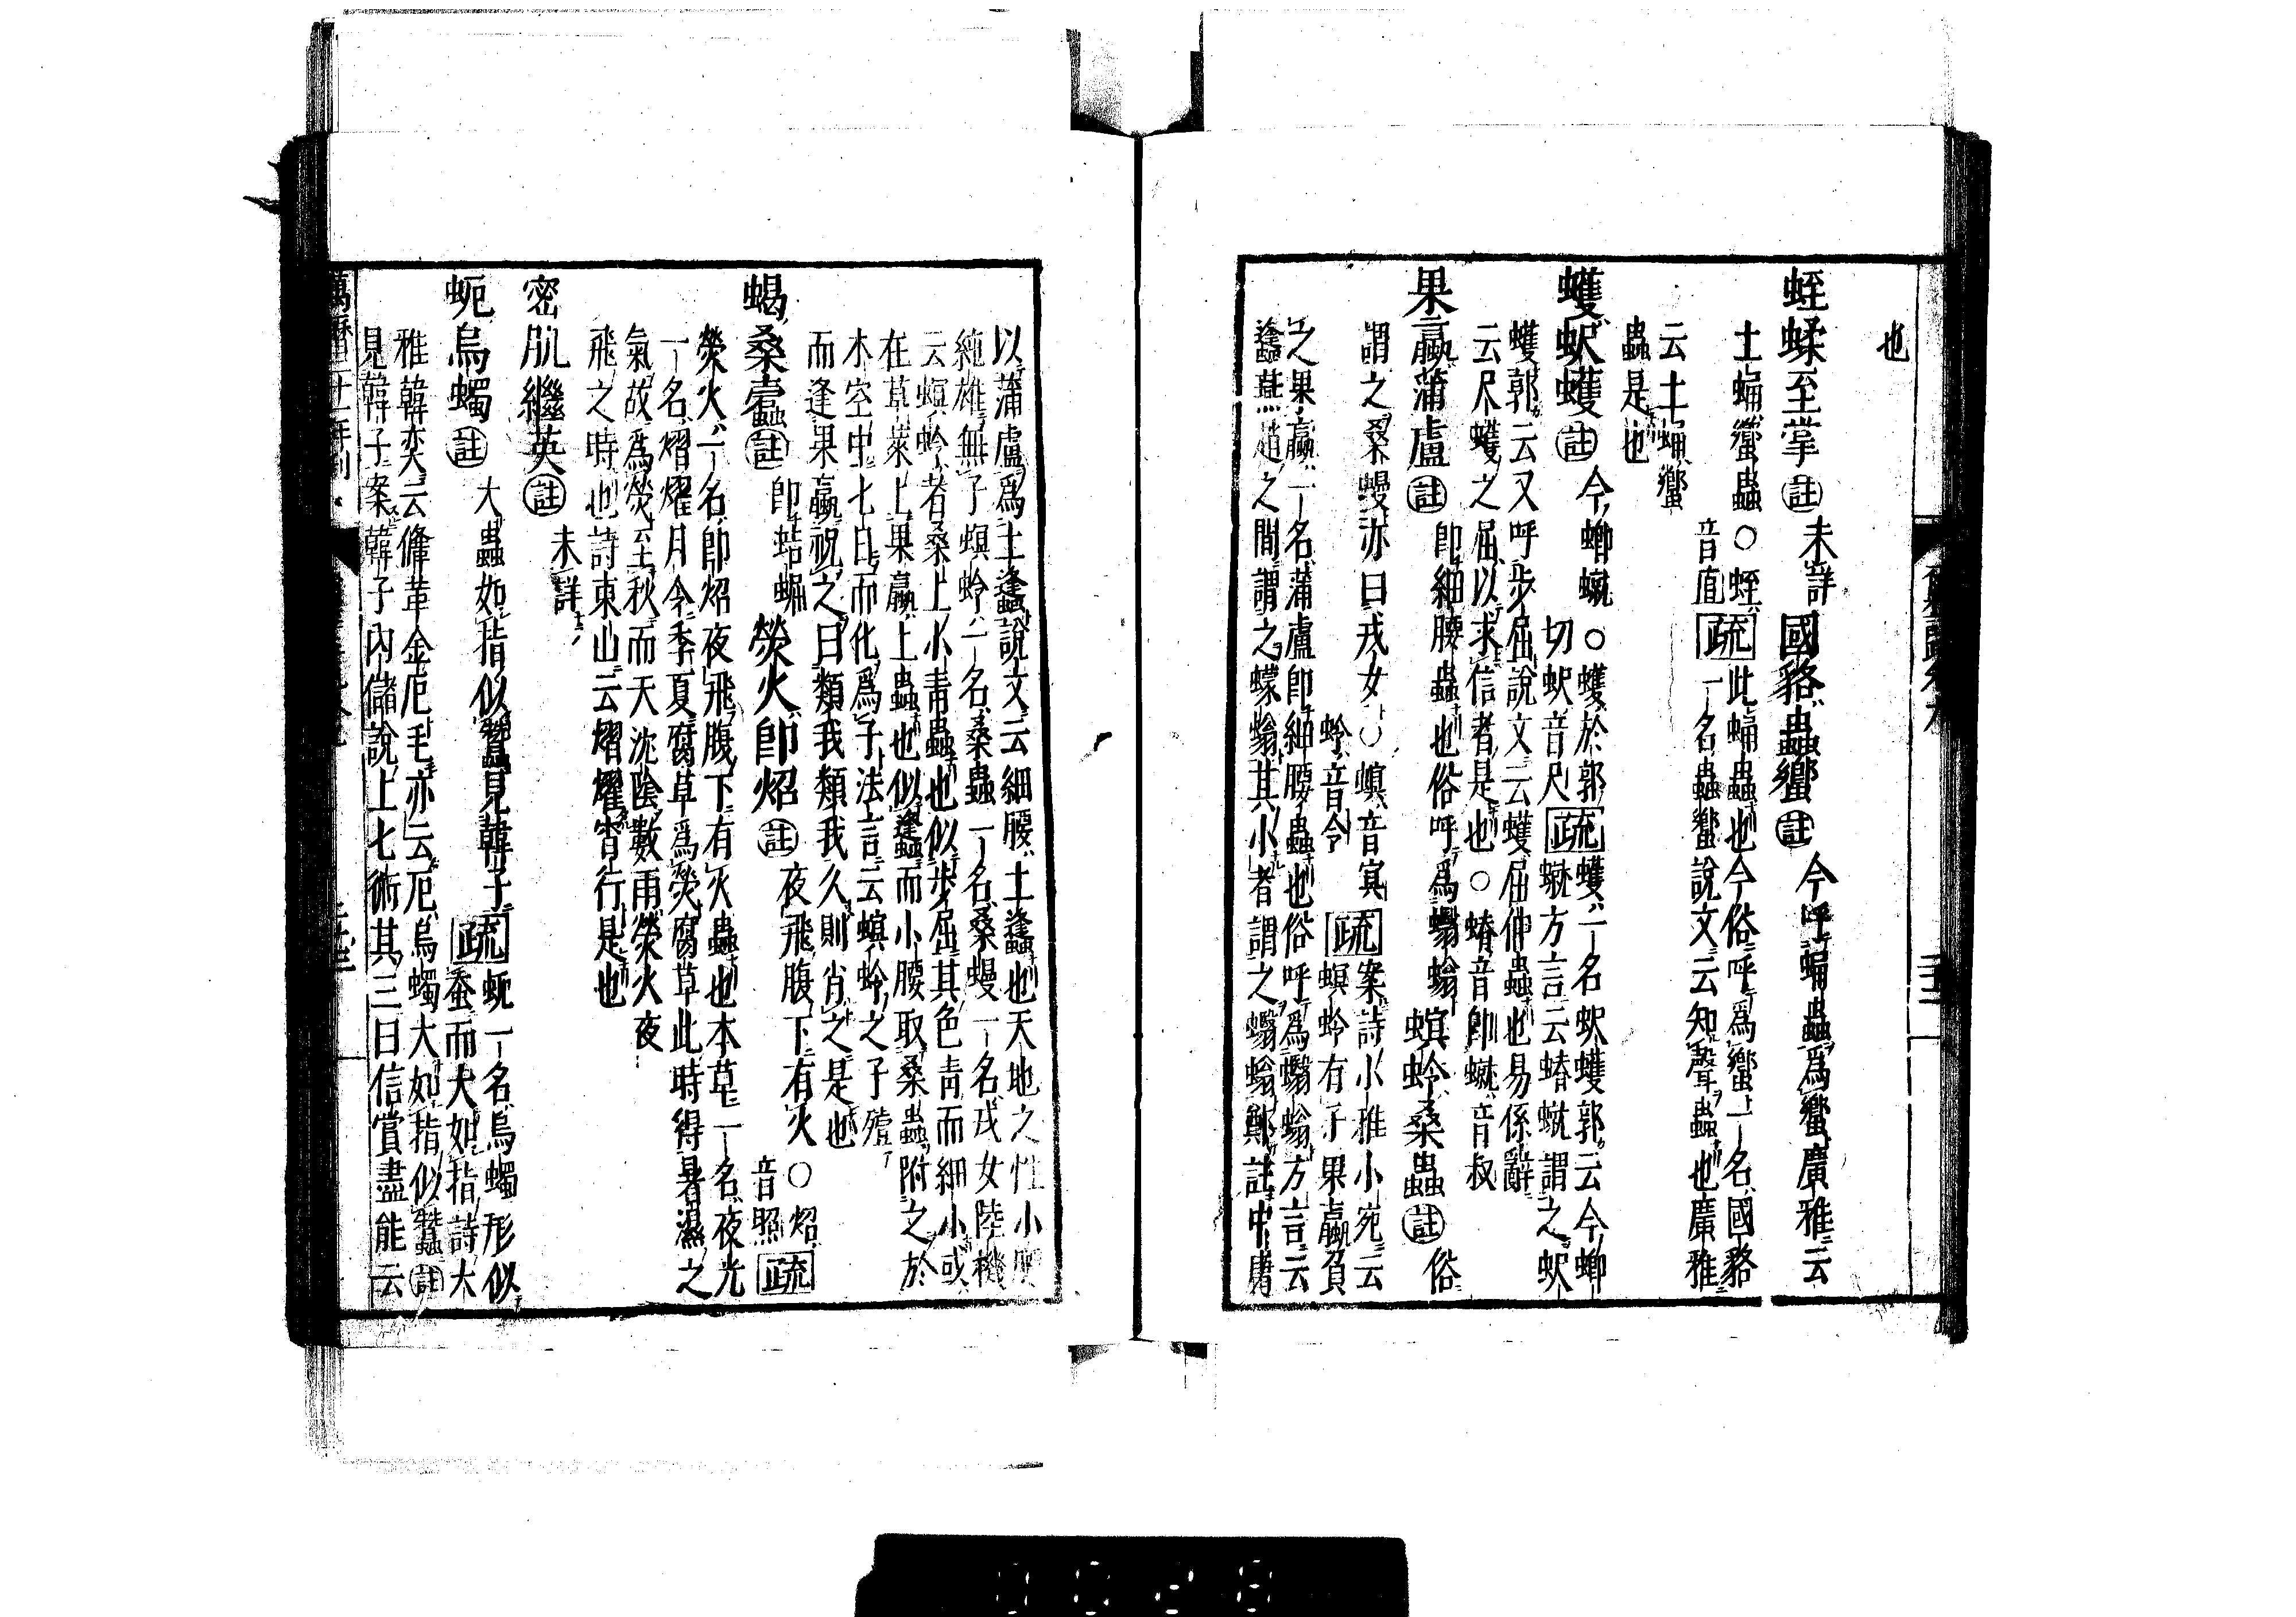 也
蛭蝚至掌 註 未詳 國貉蟲蠁 註 今呼蛹蟲爲蠁廣雅云
土蛹蠁蟲 ○蛭音直 疏 此蛹蟲也今俗呼爲蠁一名國貉
一名蟲蠁說文云知聲蟲也廣雅
云土蛹蠁
蟲是也
蠖蚇蠖 註 今蝍䗩 ○蠖於郭切蚇音尺 疏 蠖一名蚇蠖郭云今蝍
䗩方言云蝽䗩謂之蚇
蠖郭云又呼步屈說文云蠖屈伸蟲也易係辭
云尺蠖之屈以求信者是也○蝽音卽䗩音叔
果蠃蒲盧 註 卽細腰蟲也俗呼爲蠮螉 螟蛉桑蟲 註 俗
謂之桑蟃亦曰戎女 ○螟音冥蛉音令 疏 案詩小雅小宛云
螟蛉有子果蠃負
之果蠃一名蒲盧卽細腰蟲也俗呼爲蠮螉方言云
蠭燕趙之間謂之蠓螉其小者謂之蠮螉鄭註中庸
以蒲盧爲土蠭說文云細腰土蠭也天地之性小腰
純雄無子螟蛉一名桑蟲一名桑蟃一名戎女陸機
云螟蛉者桑上小靑蟲也似步屈其色靑而細小或
在草萊上果蠃土蟲也似蠭而小腰取桑蟲附之於
木空中七日而化爲子法言云螟蛉之子殪
而逢果蠃祝之曰類我類我久則肖之是也
蝎桑蠹 註 卽蛣𧌑 熒火卽炤 註 夜飛腹下有火 ○炤音照 疏
熒火一名卽炤夜飛腹下有火蟲也本草一名夜光
一名熠燿月令季夏腐草爲熒腐草此時得暑濕之
氣故爲熒至秋而天沈陰數雨熒火夜
飛之時也詩東山云熠燿宵行是也
密肌繼英 註 未詳
蚅烏蠋 註 大蟲如指似蠶見韓子 疏 蚅一名烏蠋形似
蚕而大如指詩大
雅韓奕云鞗革金厄毛亦云厄烏蠋大如指似蠶 註
見韓子案韓子內儲說上七術其三曰信賞盡能云